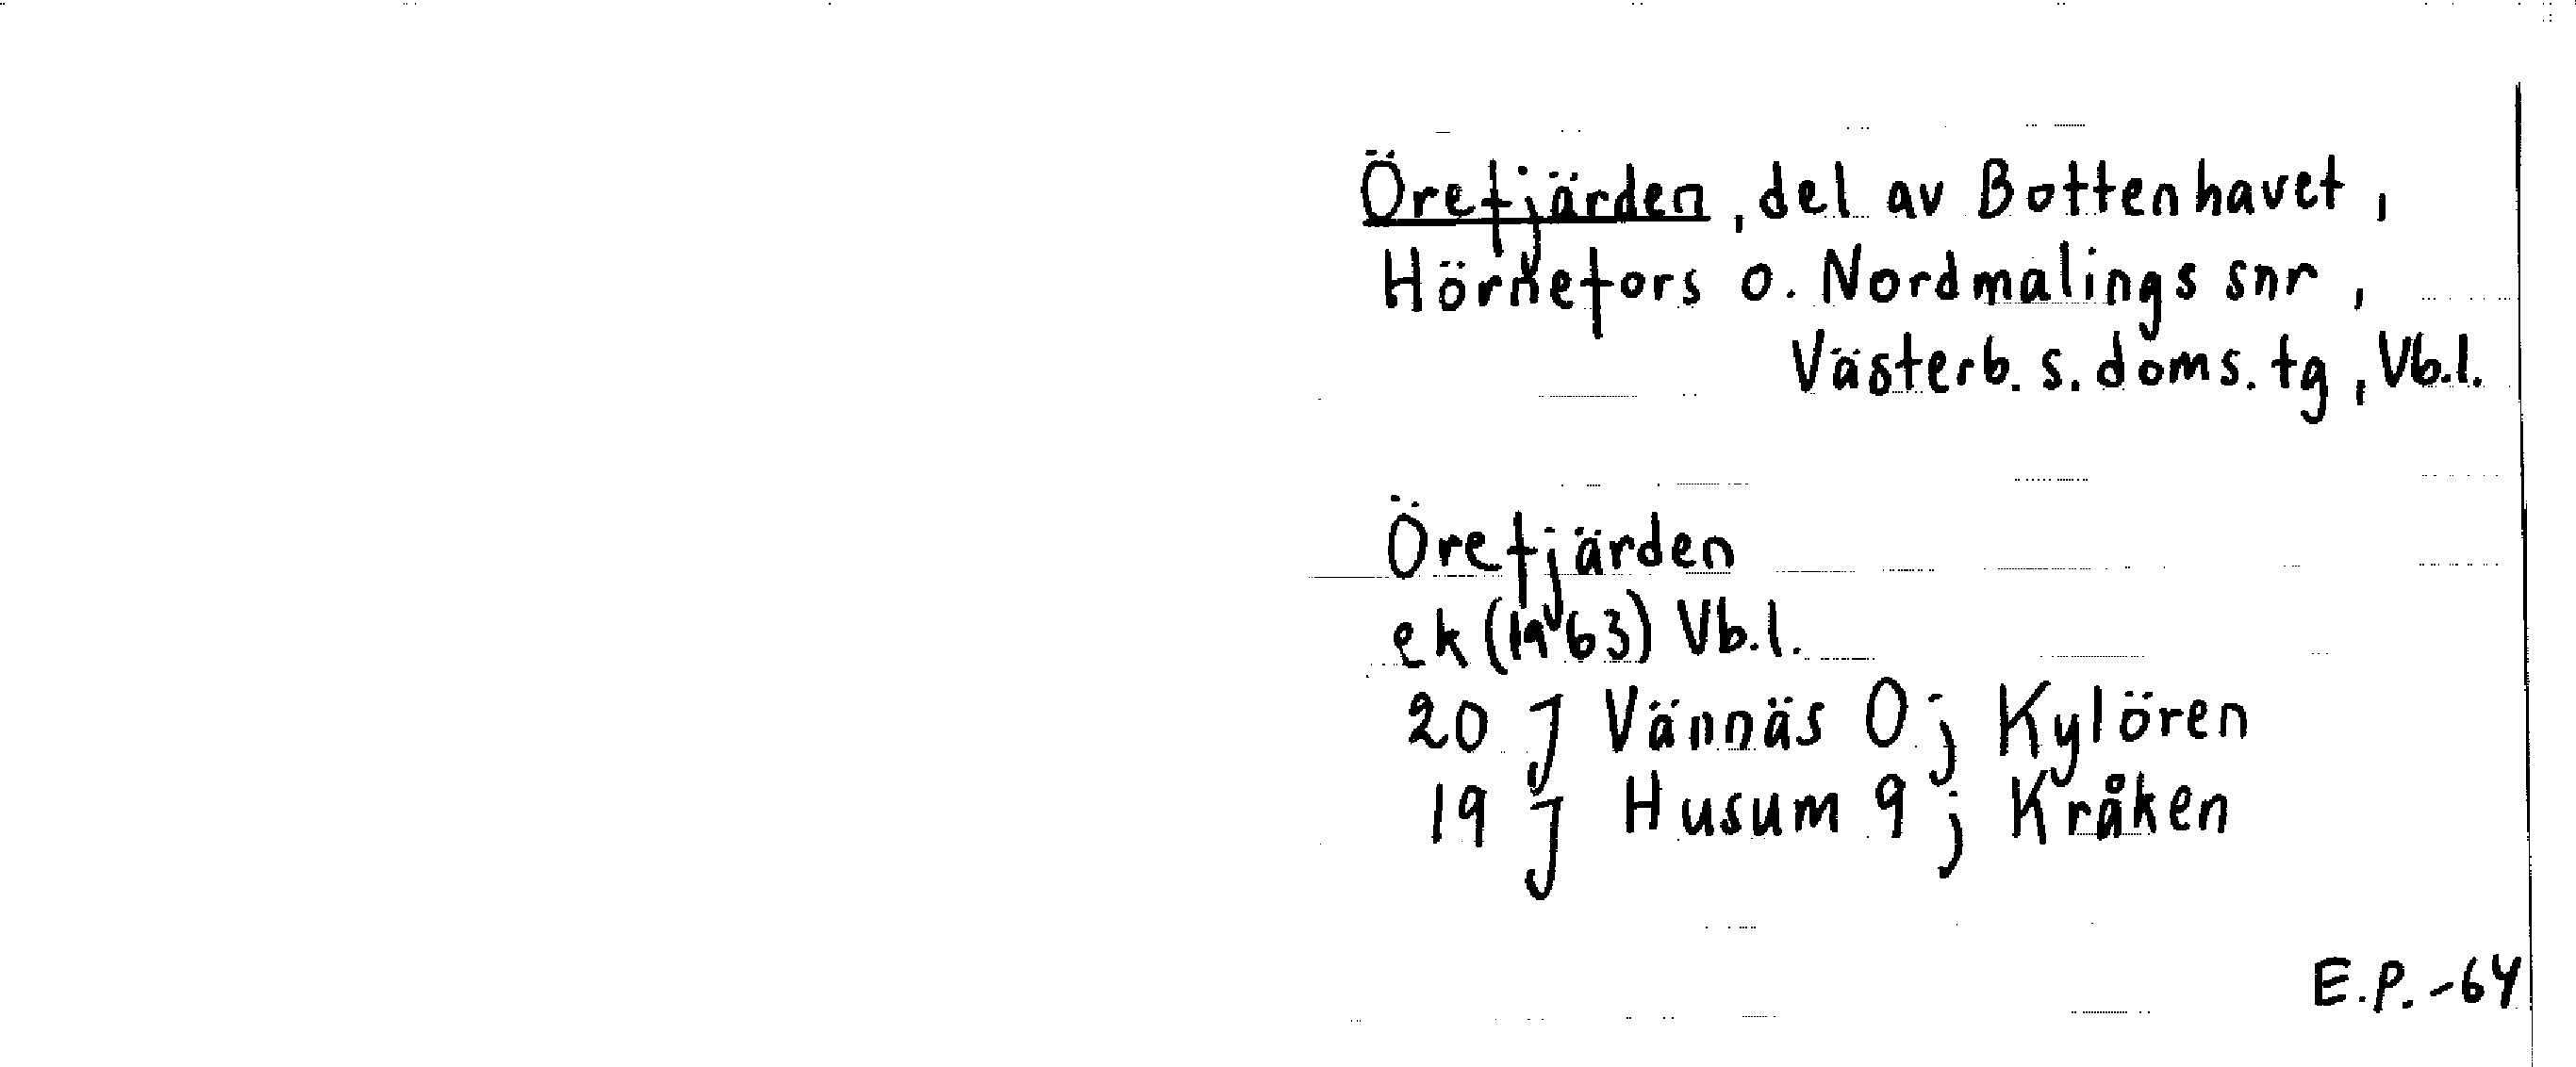 Örefjärden, del av Bottenhavet,
Hörnefors o. Nordmalings snr,
Västerb. s. doms. tg, Vb.l.
Örefjärden
ek (1963) Vb.l.
20 J Vännäs 0j Kylören
19 J Husum 9j Kråken
E.P. -64